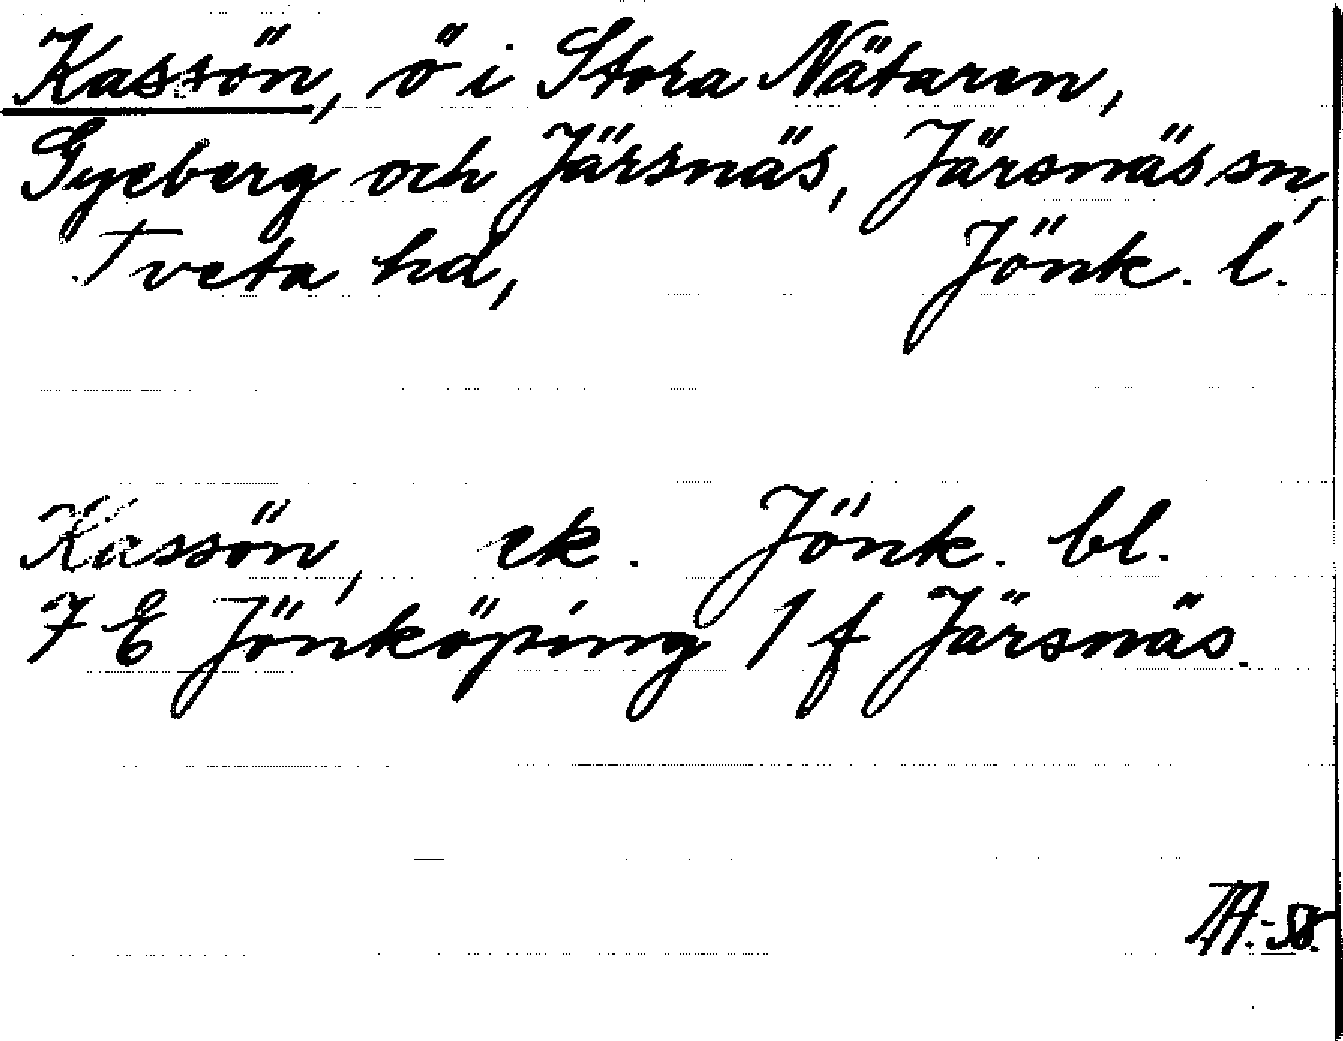 Kassön, ö i Stora Nätaren,
Gyeberg och Järsnäs, Järsnäs sn,
Tveta hd, Jönk. l.
Kassön, ek. Jönk. bl.
7 E Jönköping 1 f Järsnäs.